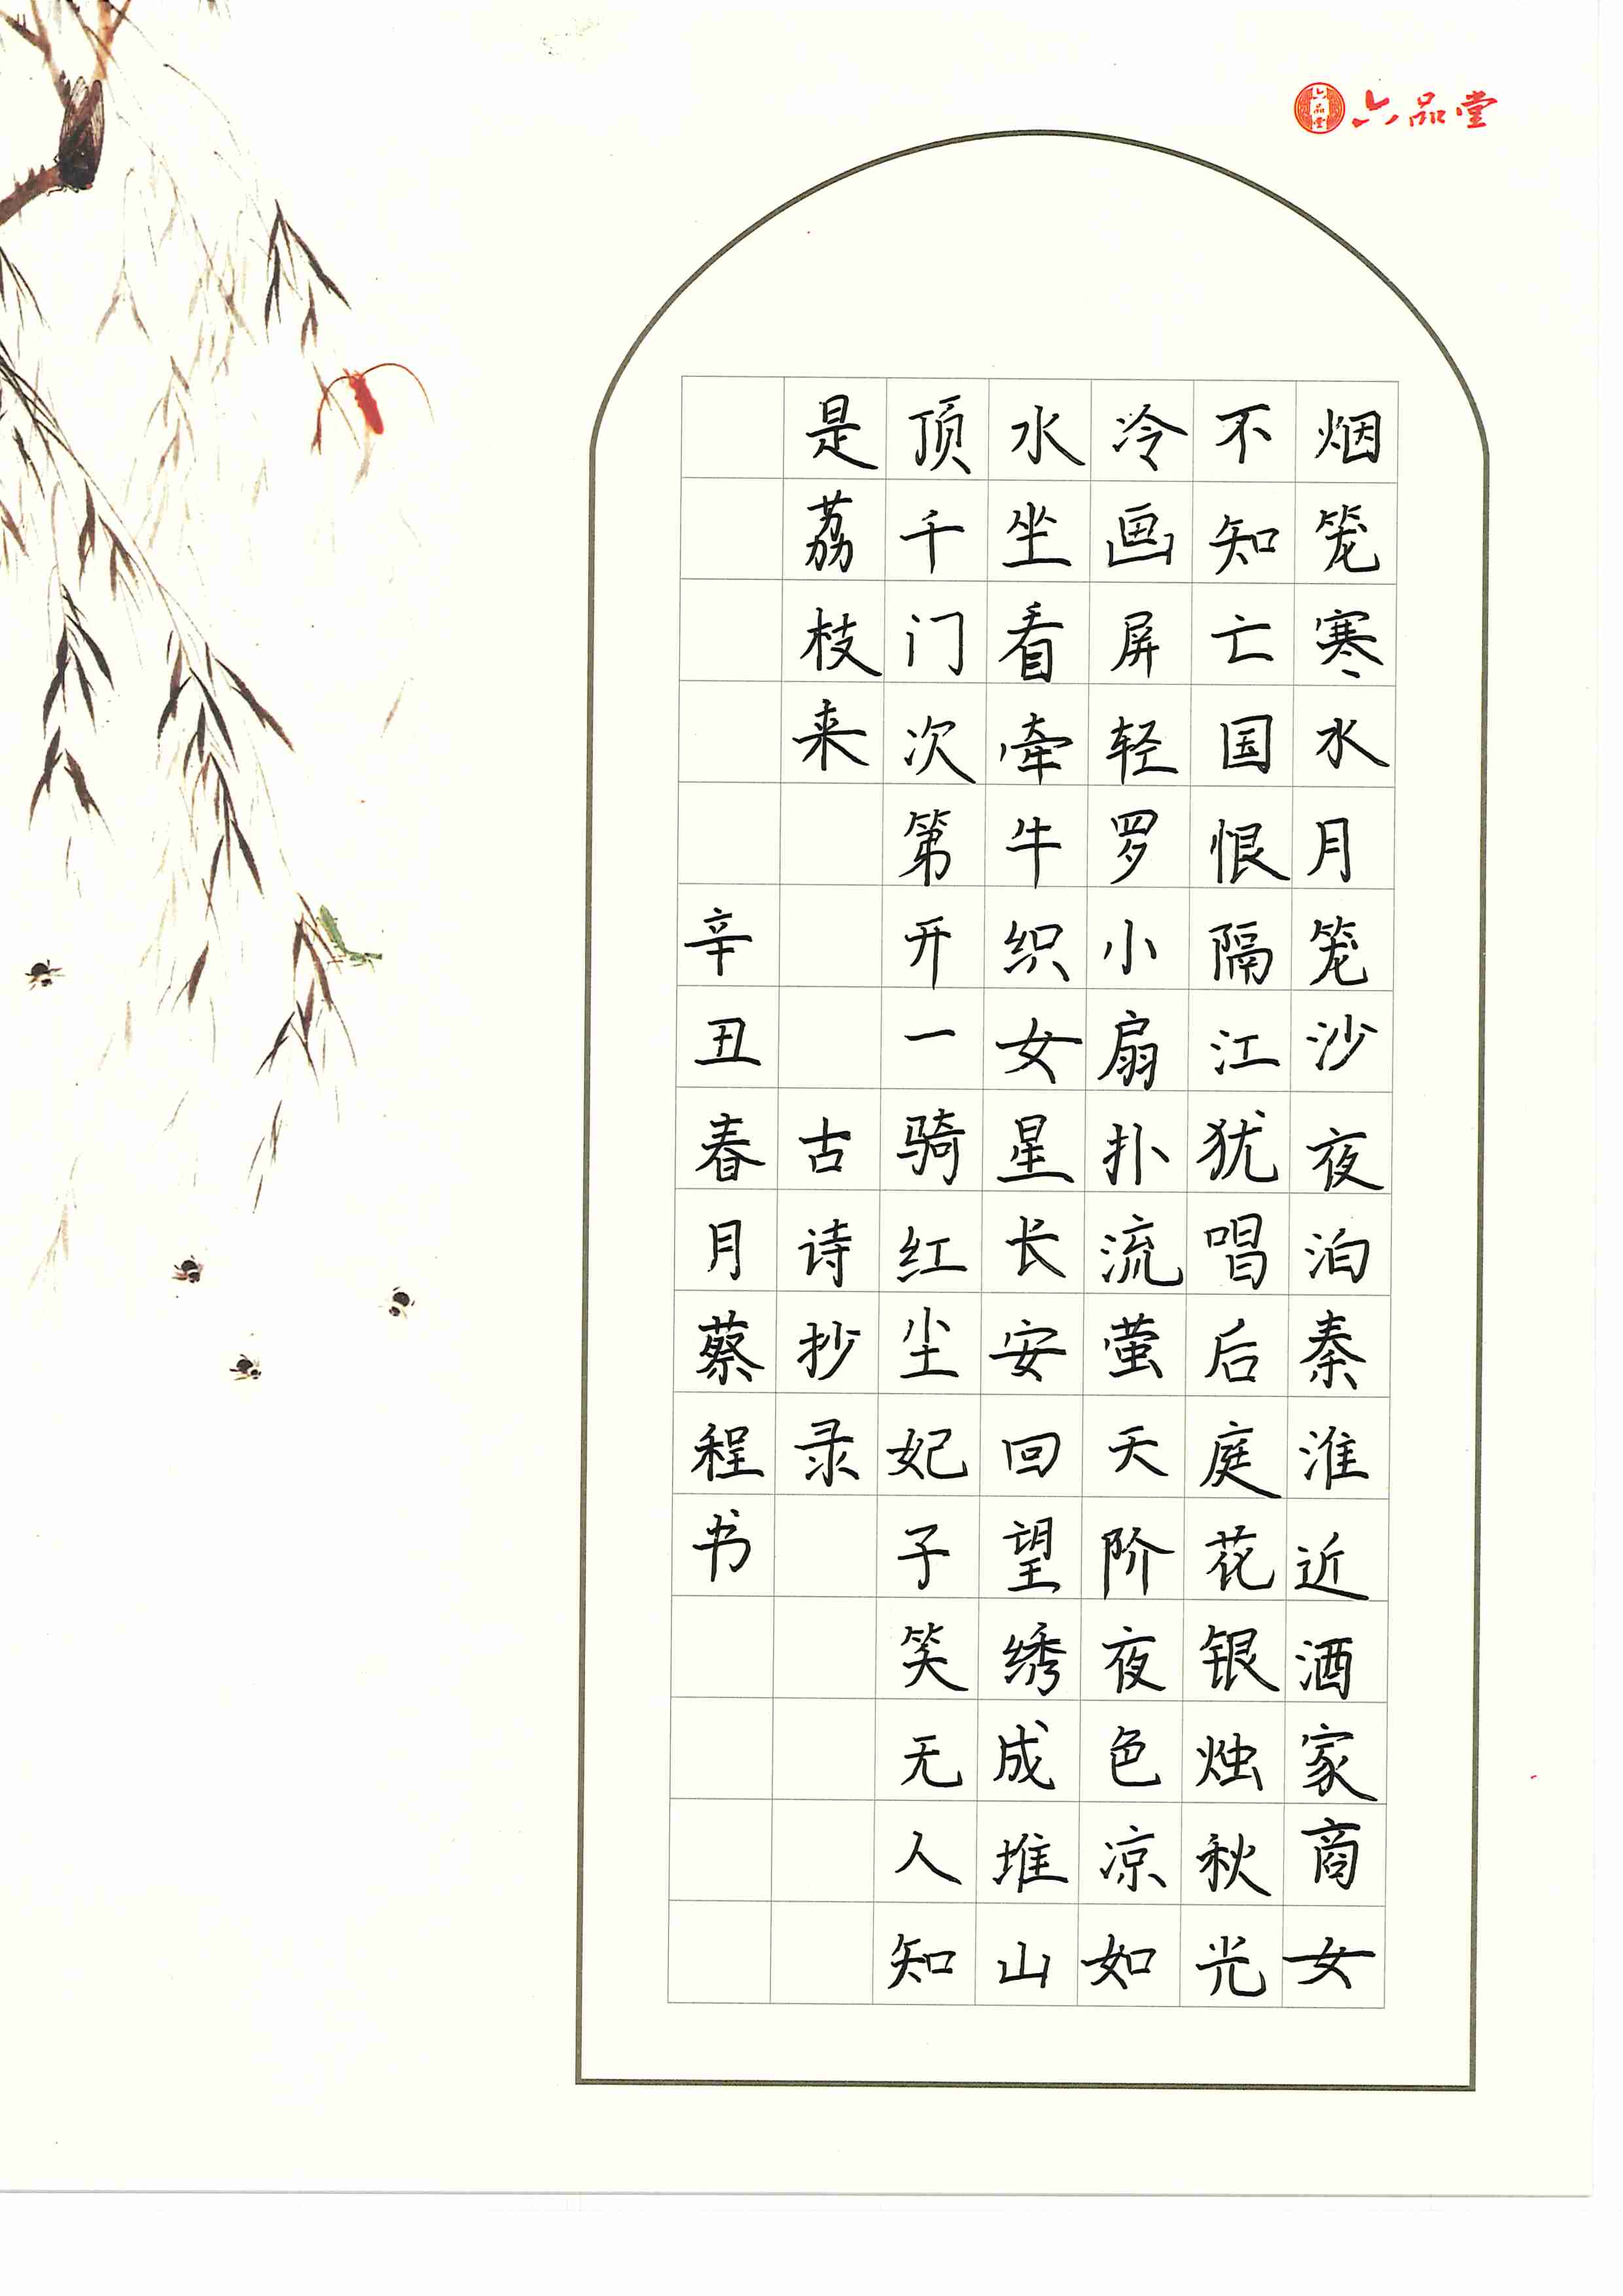 六品堂
烟笼寒水月笼沙夜泊秦淮近酒家商女
不知亡国恨隔江犹唱后庭花银烛秋光
冷画屏轻罗小扇扑流萤天阶夜色凉如
水坐看牵牛织女星长安回望绣成堆山
顶千门次第开一骑红尘妃子笑无人知
是荔枝来 古诗抄录
辛丑春月蔡程书